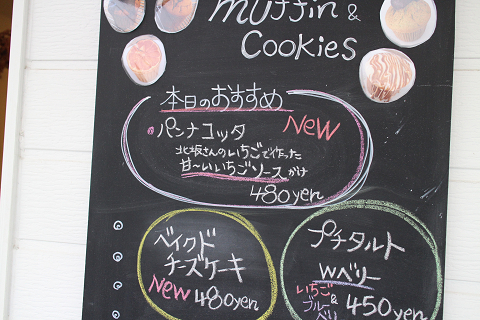 muffin &
Cookies
本日のおすすめ
パンナコッタ NEW
北坂さんのいちごで作った
甘〜いいちごソースがけ
480yen
ベイクド
チーズケーキ
NEW 480yen
プチタルト
Wベリー
いちご&
ブルーベリー
450yen